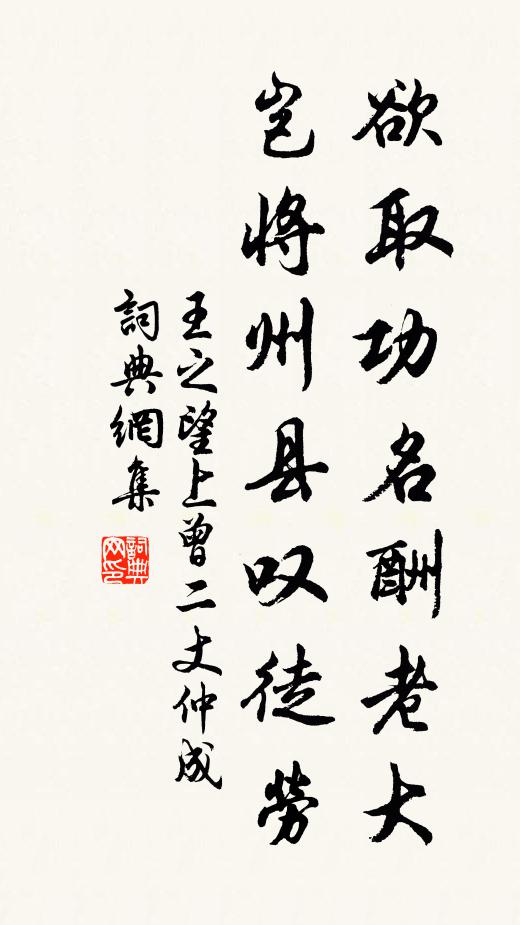 欲取功名酬老大
岂将州县叹徒劳
王之望上曾二丈仲成
詞典網集
詞典网印